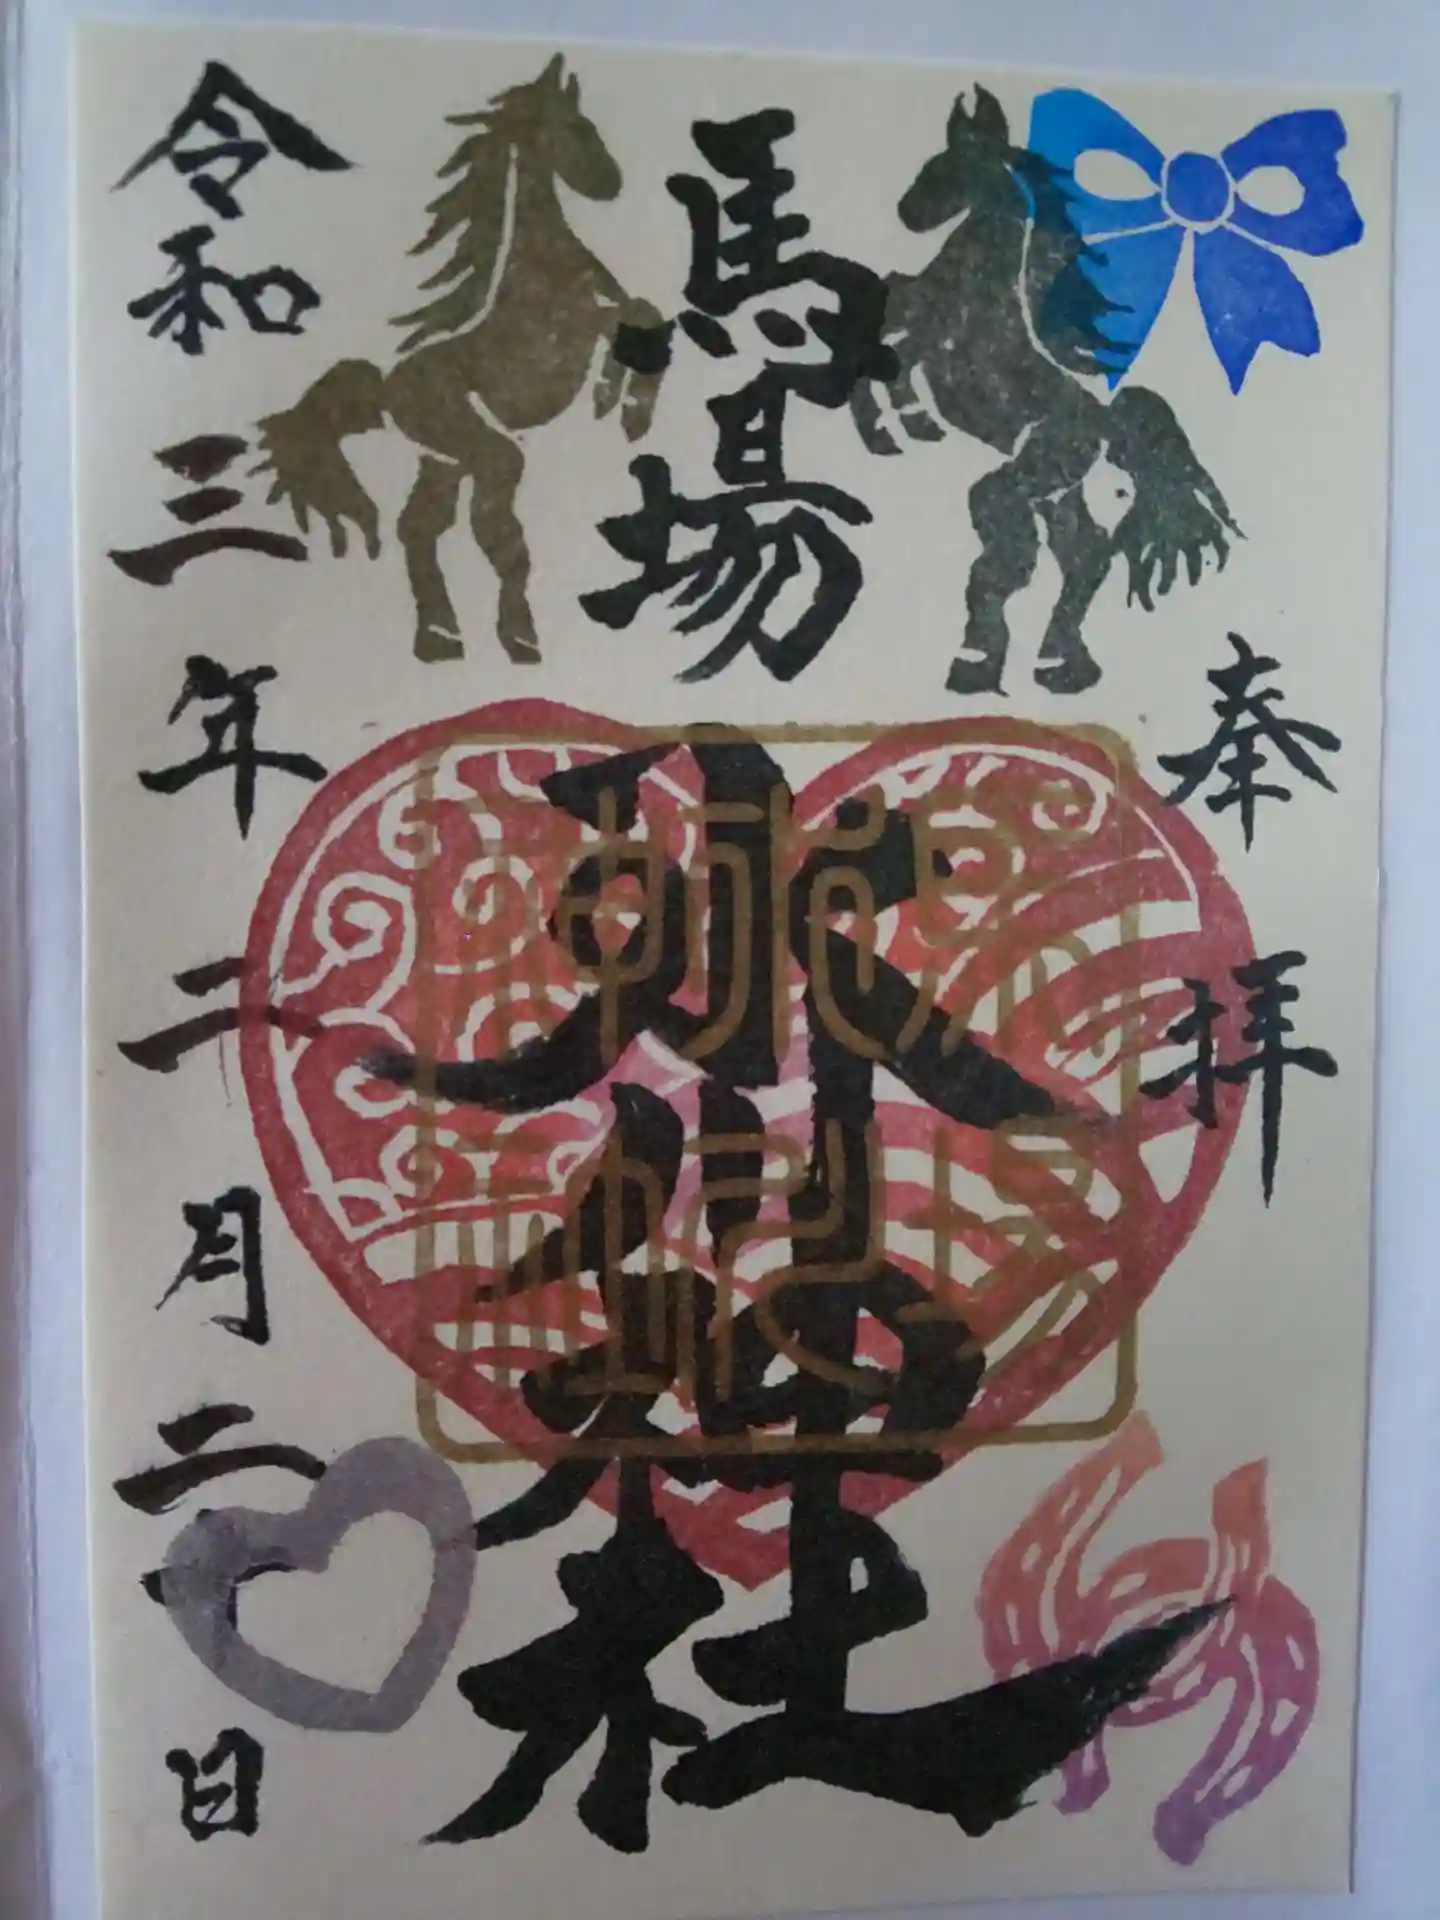 奉拝
馬場
氷川神社
令和三年二月二一日